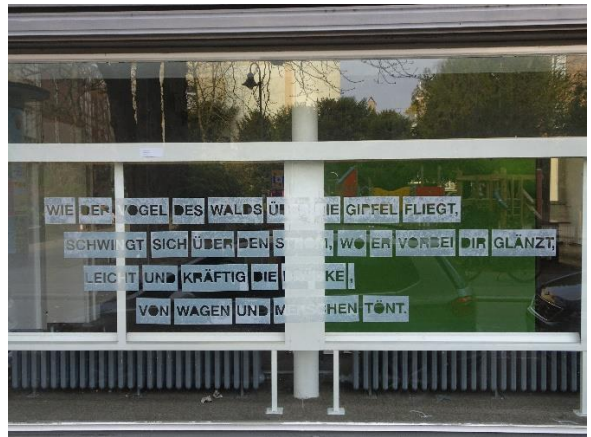 WIE DER VOGEL DES WALDS ÜBER DIE GIPFEL FLIEGT,
SCHWINGT SICH ÜBER DEN STROM, WO ER VORBEI DIR GLÄNZT,
LEICHT UND KRÄFTIG DIE BRÜCKE,
VON WAGEN UND MENSCHEN TÖNT.